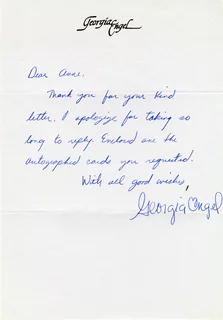 Georgia Engel
Dear Anne,
Thank you for your kind
letter. I apologize for taking so
long to reply. Enclosed are the
autographed cards you requested.
With all good wishes,
Georgia Engel